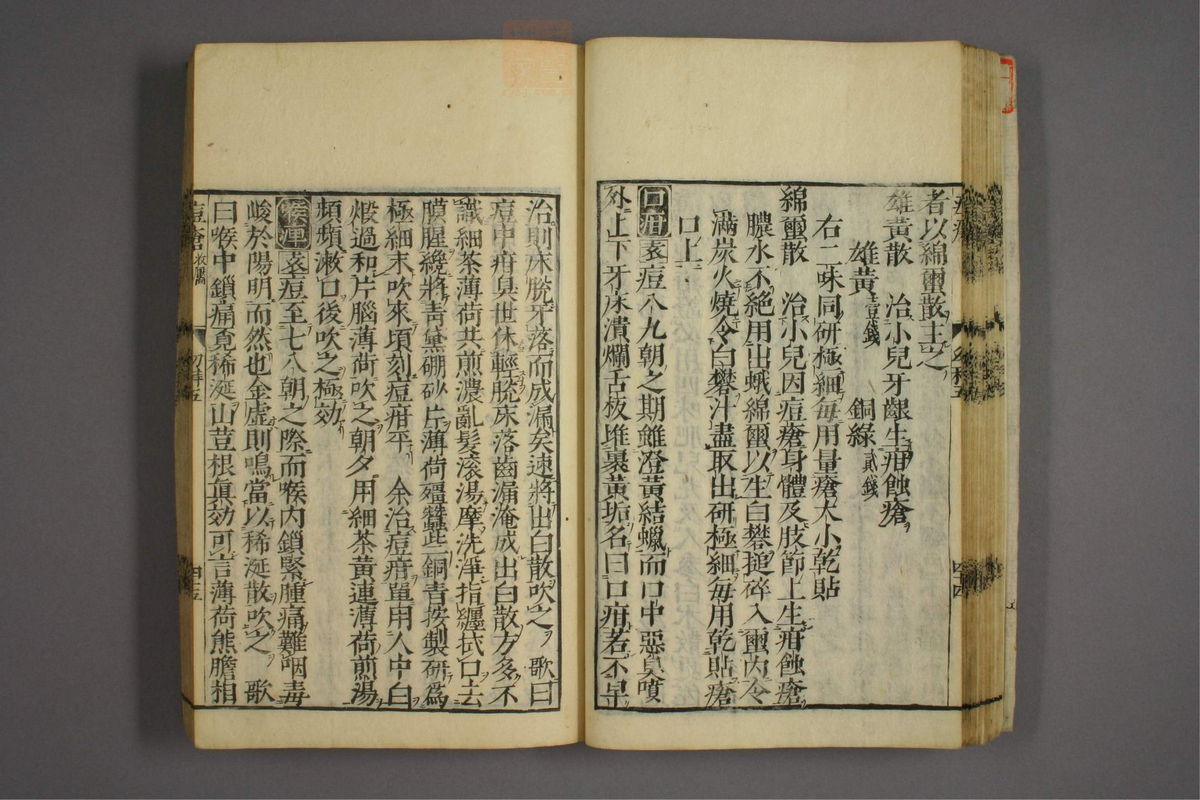 者以綿蠒散主之
雄黃散　治小兒牙齦生疳蝕瘡
雄黃壹錢　銅綠貳錢
右二味同研極細每用量瘡大小乾貼
綿蠒散　治小兒因痘瘡身體及肢節上生疳蝕瘡
膿水不絕用出蛾綿蠒以生白礬搥碎入蠒內令
滿炭火燒令白礬汁盡取出研極細每用乾貼瘡
口上
口疳　痘八九朝之期雖澄黃結蠟而口中惡臭噴
外上下牙床潰爛舌板堆裹黃垢名曰口疳若不早
治則床脫牙落而成漏矣速將出白散吹之　歌曰
痘中疳臭世休輕脫床落齒漏淹成出白散方多不
識細茶薄荷共煎濃亂髮滾湯摩洗淨指纏拭口去
膜腥纔將青黛硼砂片薄荷殭蠶二銅青按製研為
極細末吹來頃刻痘疳平　余治痘疳單用人中白
煆過和片腦薄荷吹之朝夕用細茶黃連薄荷煎湯
頻頻漱口後吹之極効
喉痺　痘至七八朝之際而喉內鎖緊腫痛難咽毒
峻於陽明而然也金虛則鳴當以稀涎散吹之　歌
曰喉中鎖痛竟稀涎山荳根真効可言薄荷熊膽相
痘瘡
四十五